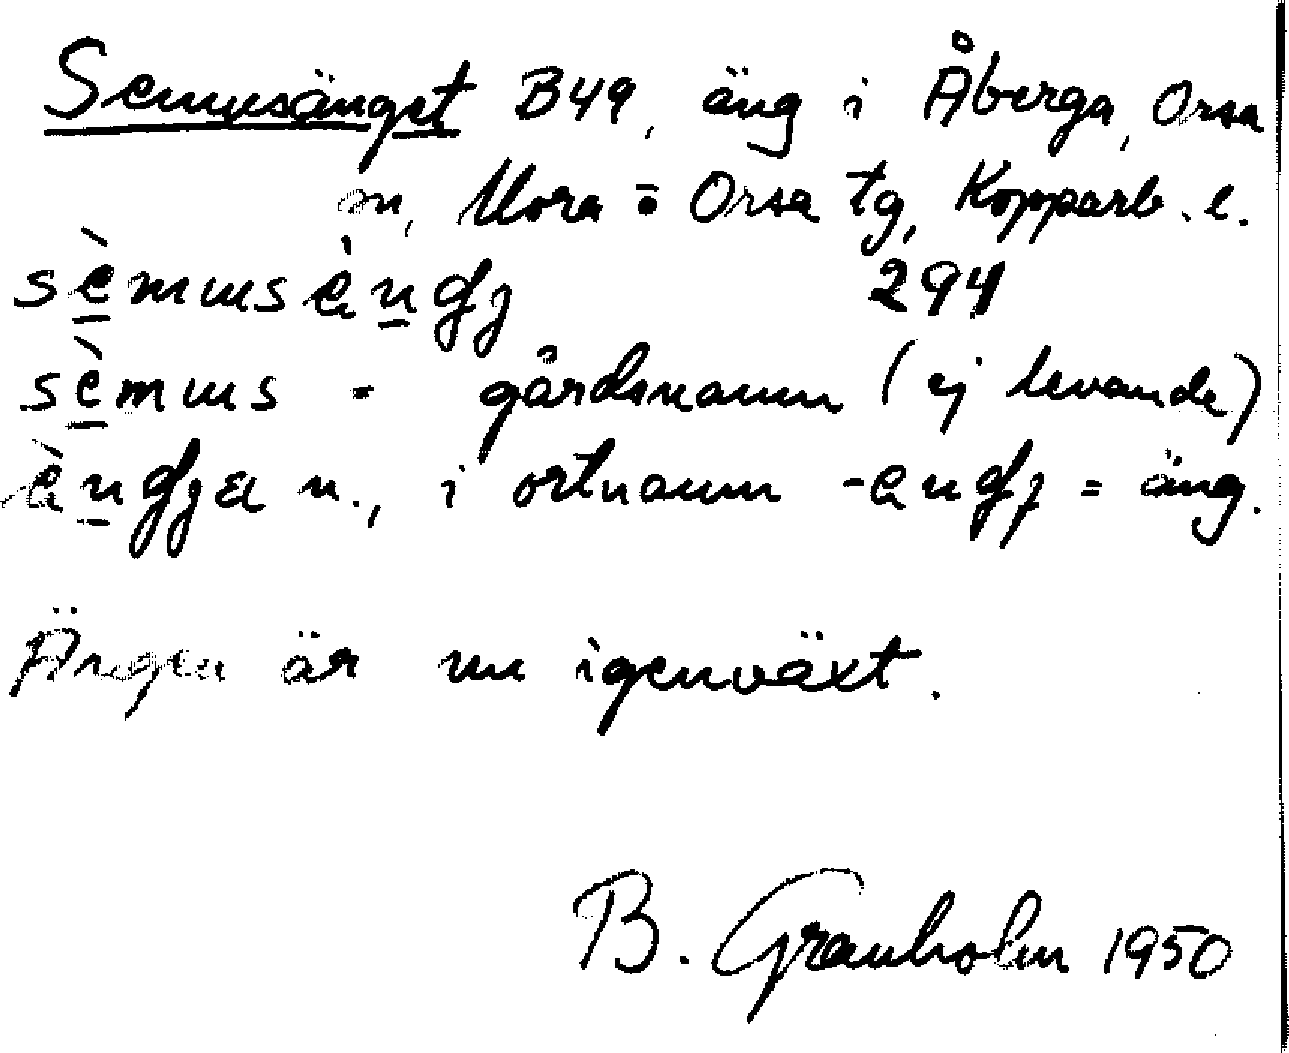 Semusänget B49, äng i Åberga, Orsa
sn, Mora o Orsa tg, Kopparb. l.
sèmmsèngj 294
sèmms - gårdsnamn (ej levande)
èngja n., i ortnamn -engj = äng.
Ängen är nu igenväxt.
B. Granholm 1950